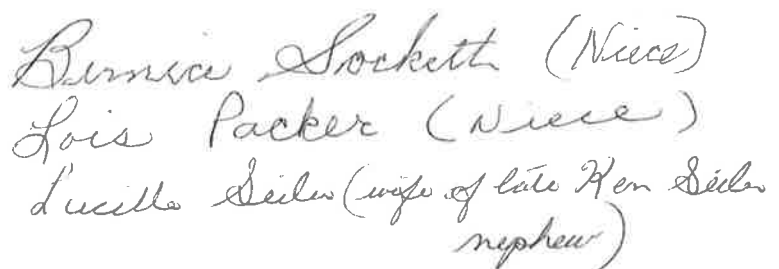 Bernice Sockett (Niece)
Lois Packer (Niece)
Lucille Seiler (wife of late Ken Seiler
nephew)